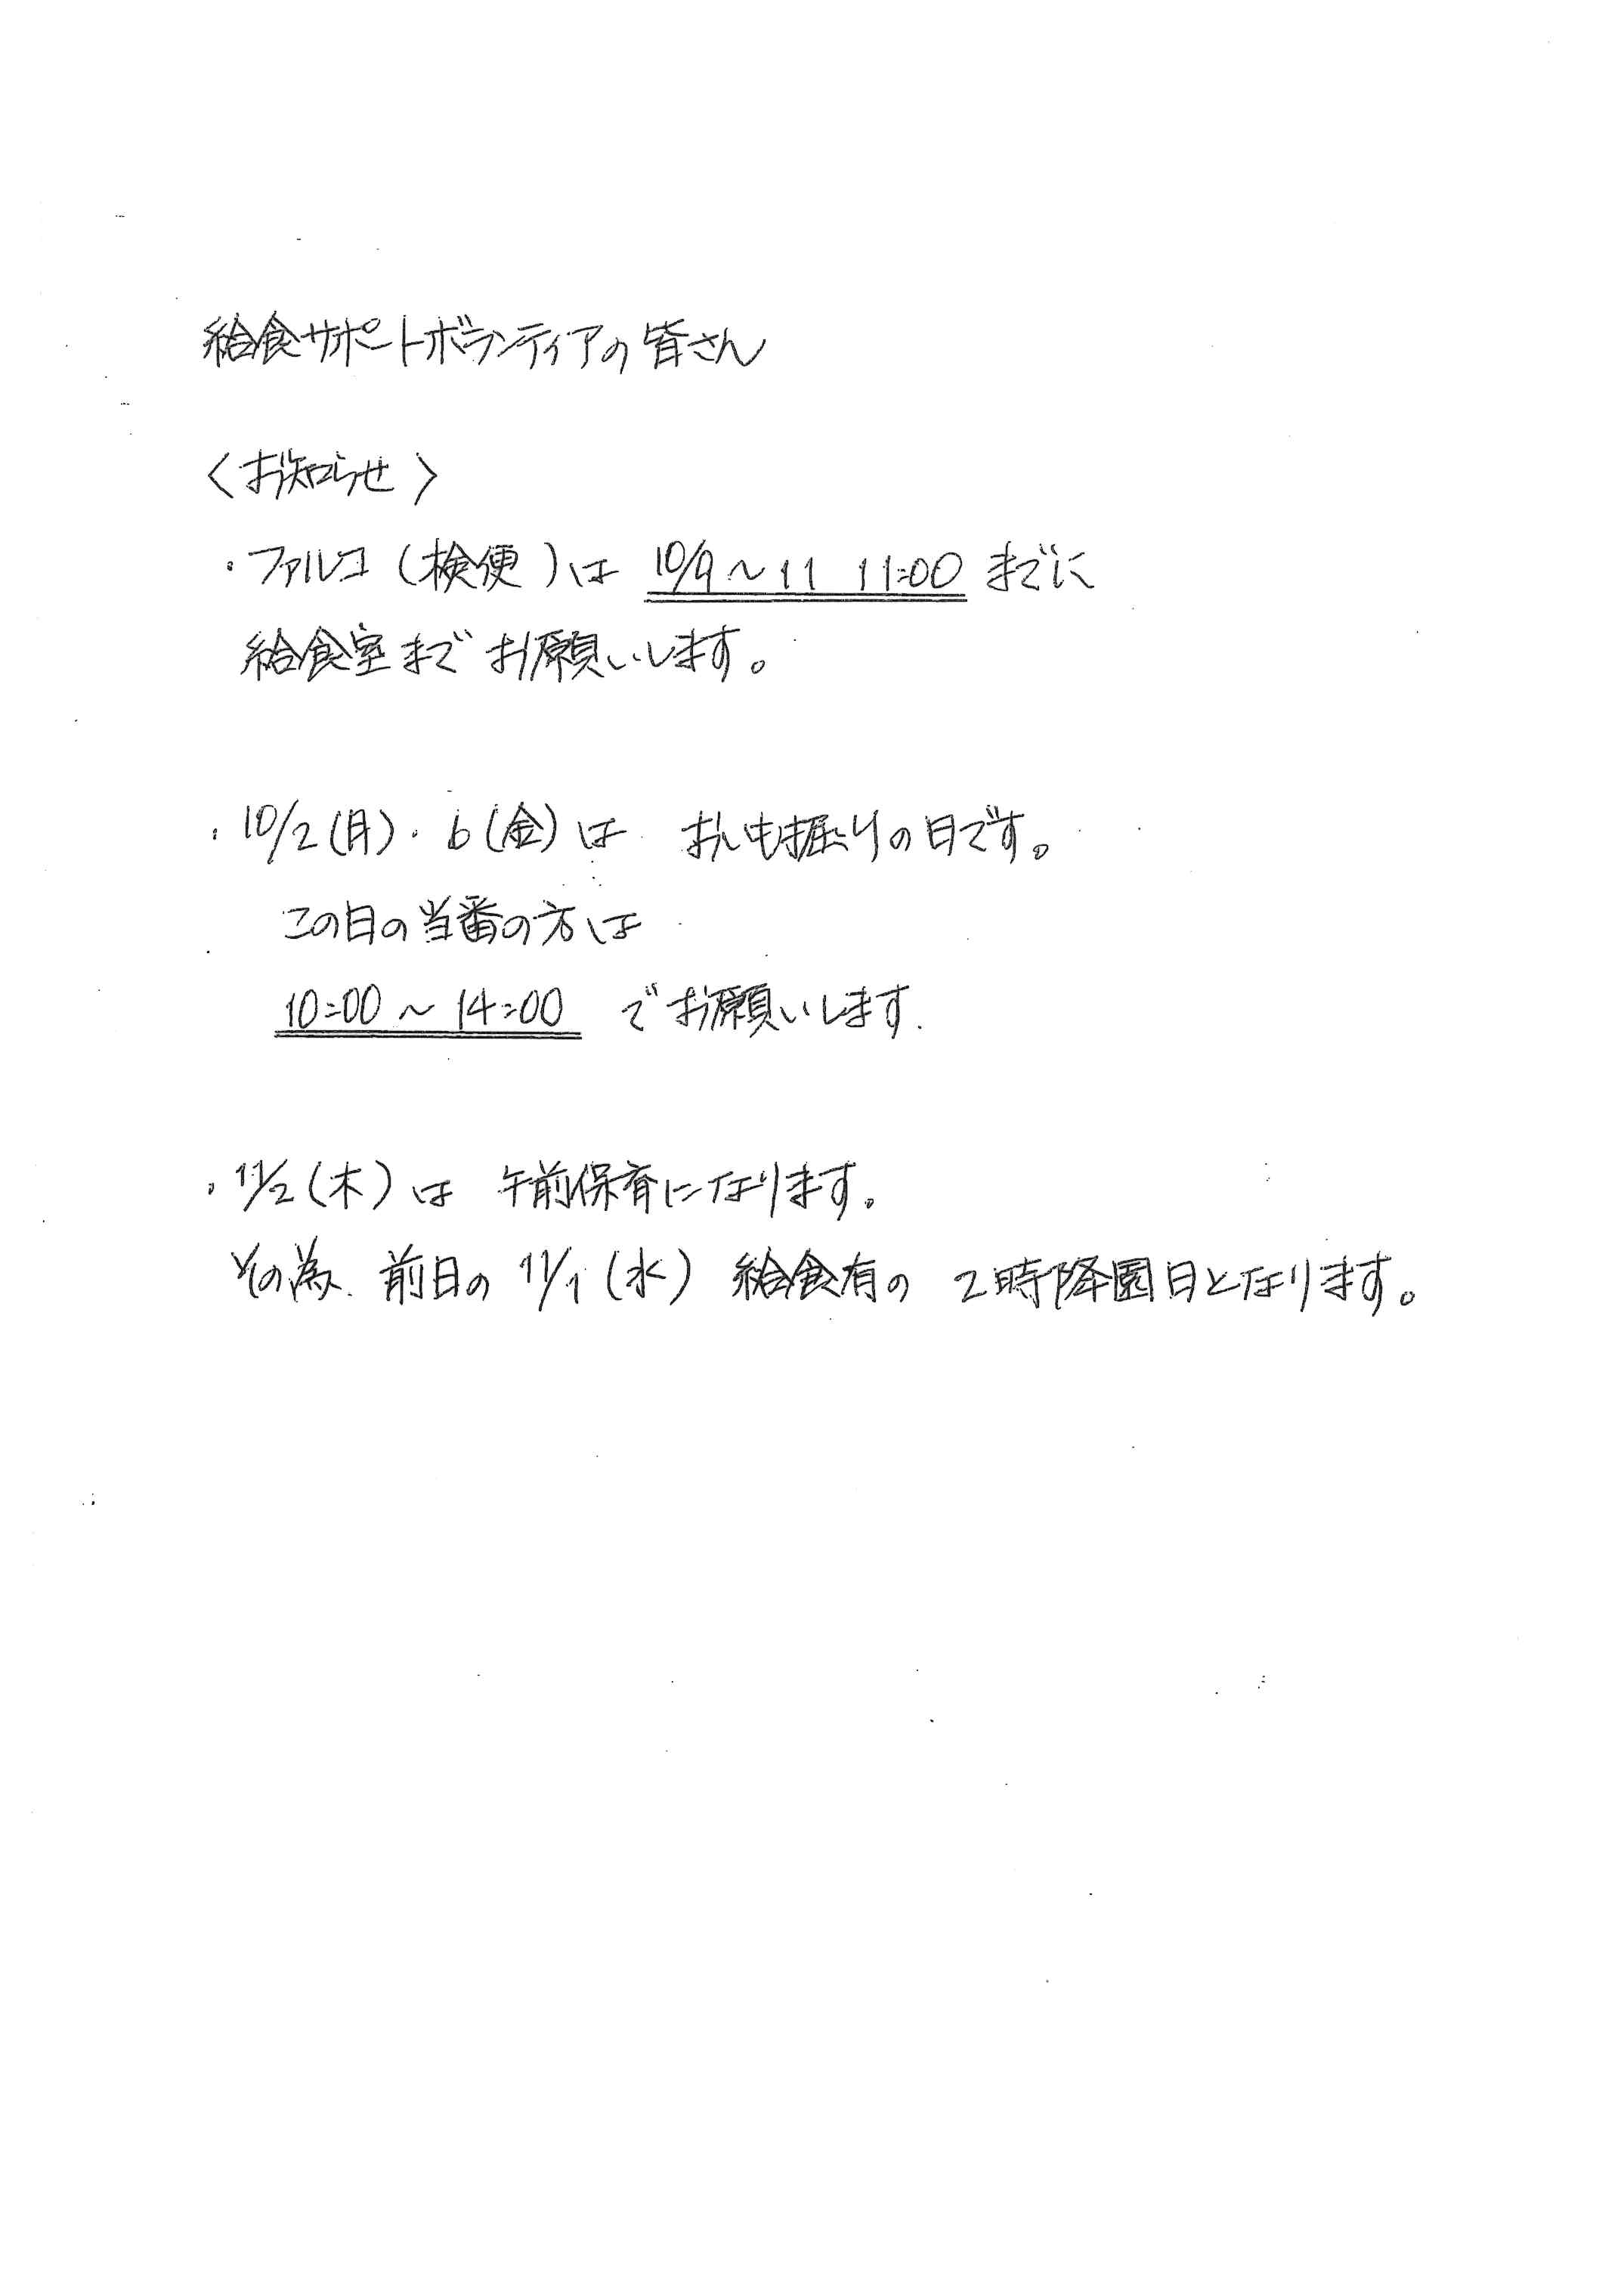 給食サポートボランティアの皆さん
〈お知らせ〉
・ファルコ(検便)は 10/9〜11 11:00 までに
給食室までお願いします。
・10/2(月)・6(金)は おいも掘りの日です。
この日の当番の方は
10:00〜14:00 でお願いします.
・11/2(木)は 午前保育になります。
その為、前日の 11/1(水) 給食有の 2時降園日となります。